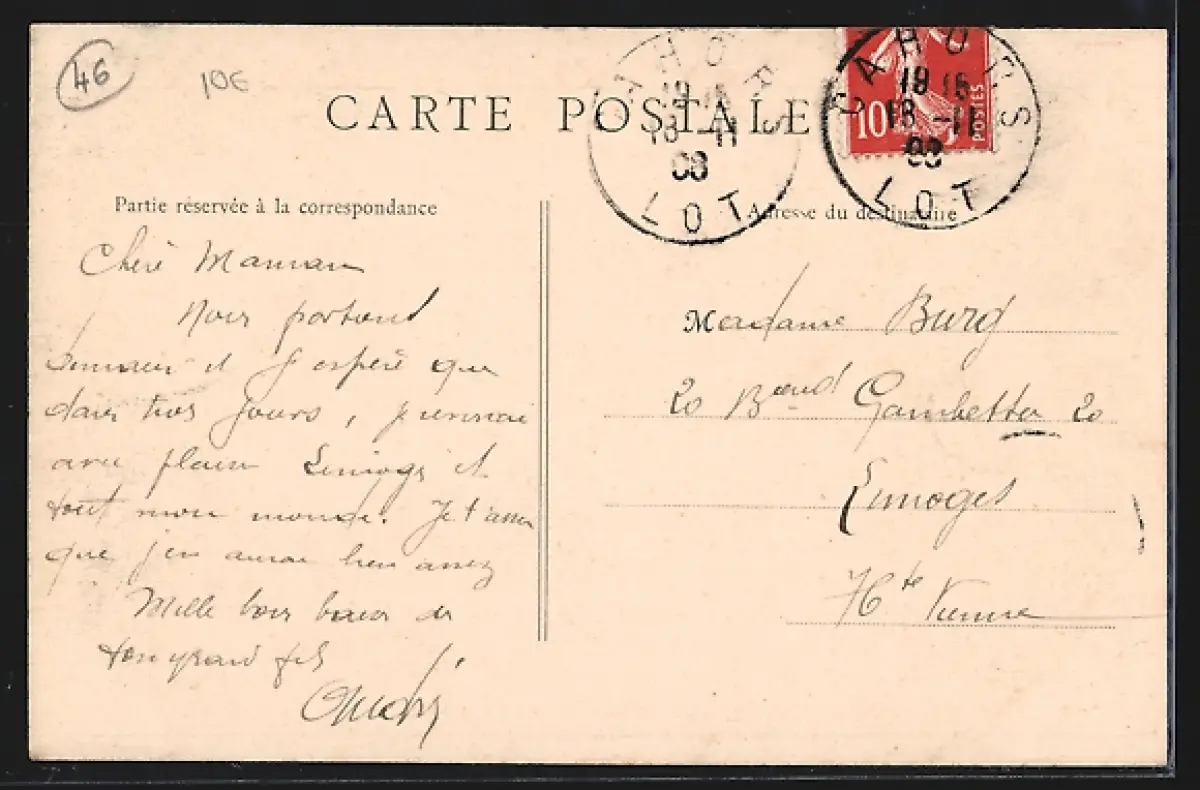 46
10€
CARTE POSTALE
CAHORS
18 15
18 -11
08
LOT
CAHORS
18 15
18 -11
08
LOT
10
POSTES
Partie réservée à la correspondance
Adresse du destinataire
Chère Maman
Nous partons
demain et j'espère que
dans trois jours, je
avec Limoges et
tout mon monde. Je t'assure
que j'en aurai bien assez
Mille bons baisers de
ton grand fils
André
Madame Burg
20 Bould Gambetta 20
Limoges
Hte Vienne